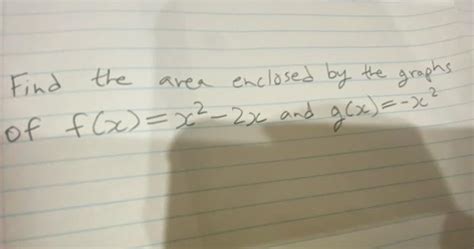 Find the area enclosed by the graphs
of f(x)=x²-2x and g(x)=-x²